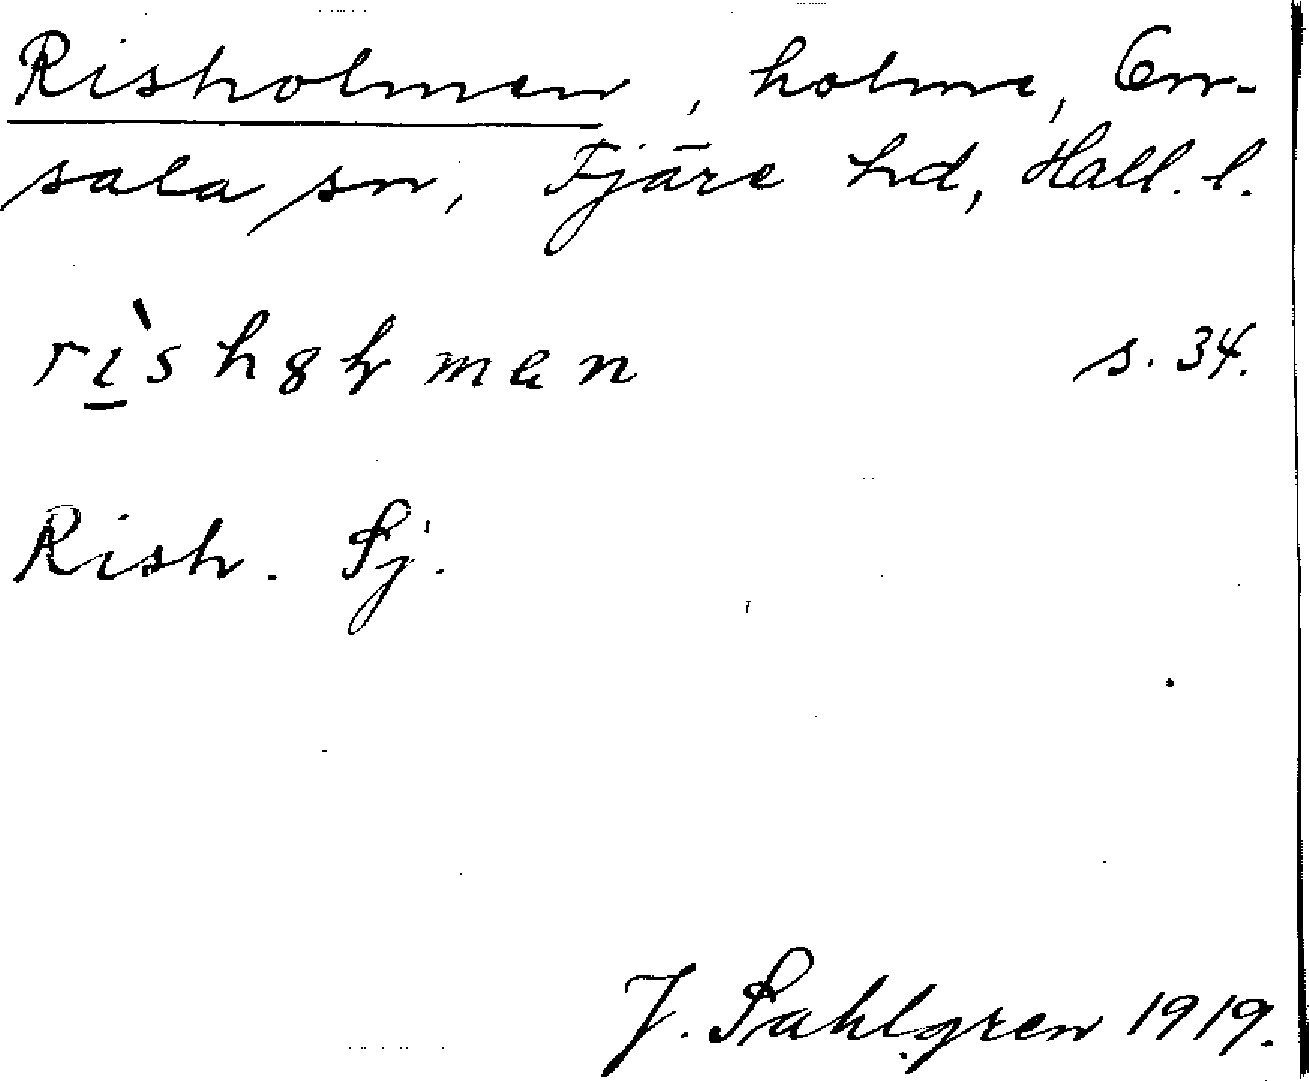 Risholmen, holme, On-
sala sn, Fjäre hd, Hall. l.
s. 34.
Rish. Sj.
J. Sahlgren 1919.